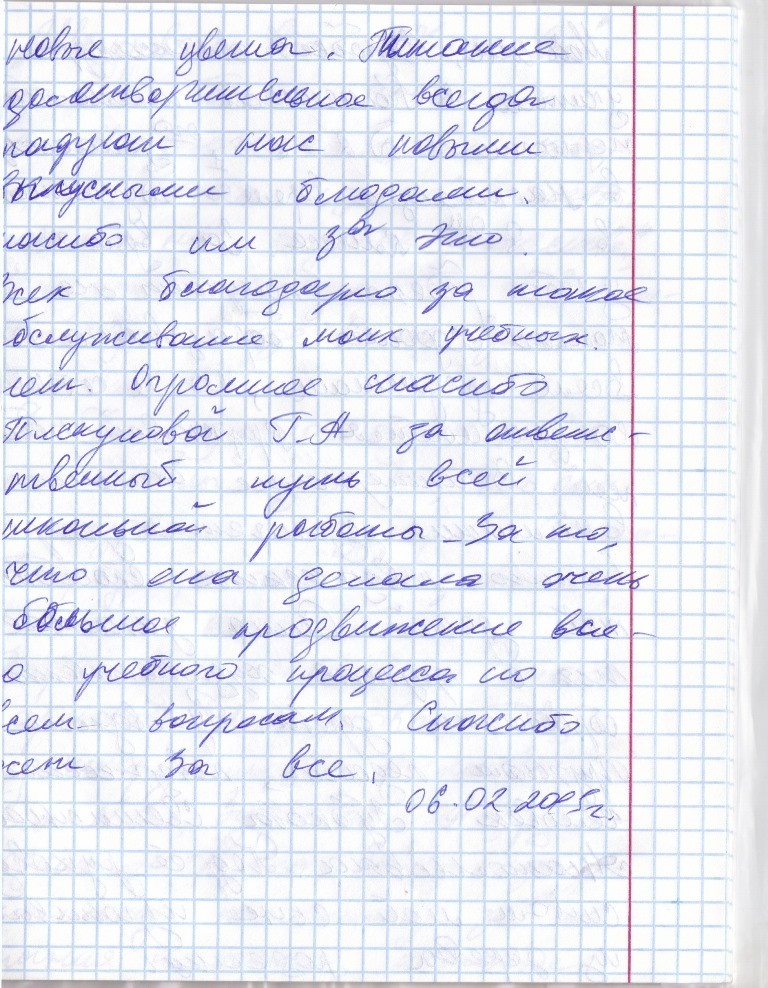 новые цвета. Питание
удовлетворительное всегда
радужи нас новыми
вкусными блюдами.
пасибо им за это.
Всех благодарю за такое
обслуживание моих учебных
лет. Огромное спасибо
Пискуновой Г.А за ответс-
твенный путь всей
школьной работы. За то,
что она делала очень
большое продвижение все-
о учебного процесса по
всем вопросам. Спасибо
сем за все.
06.02.2015г.